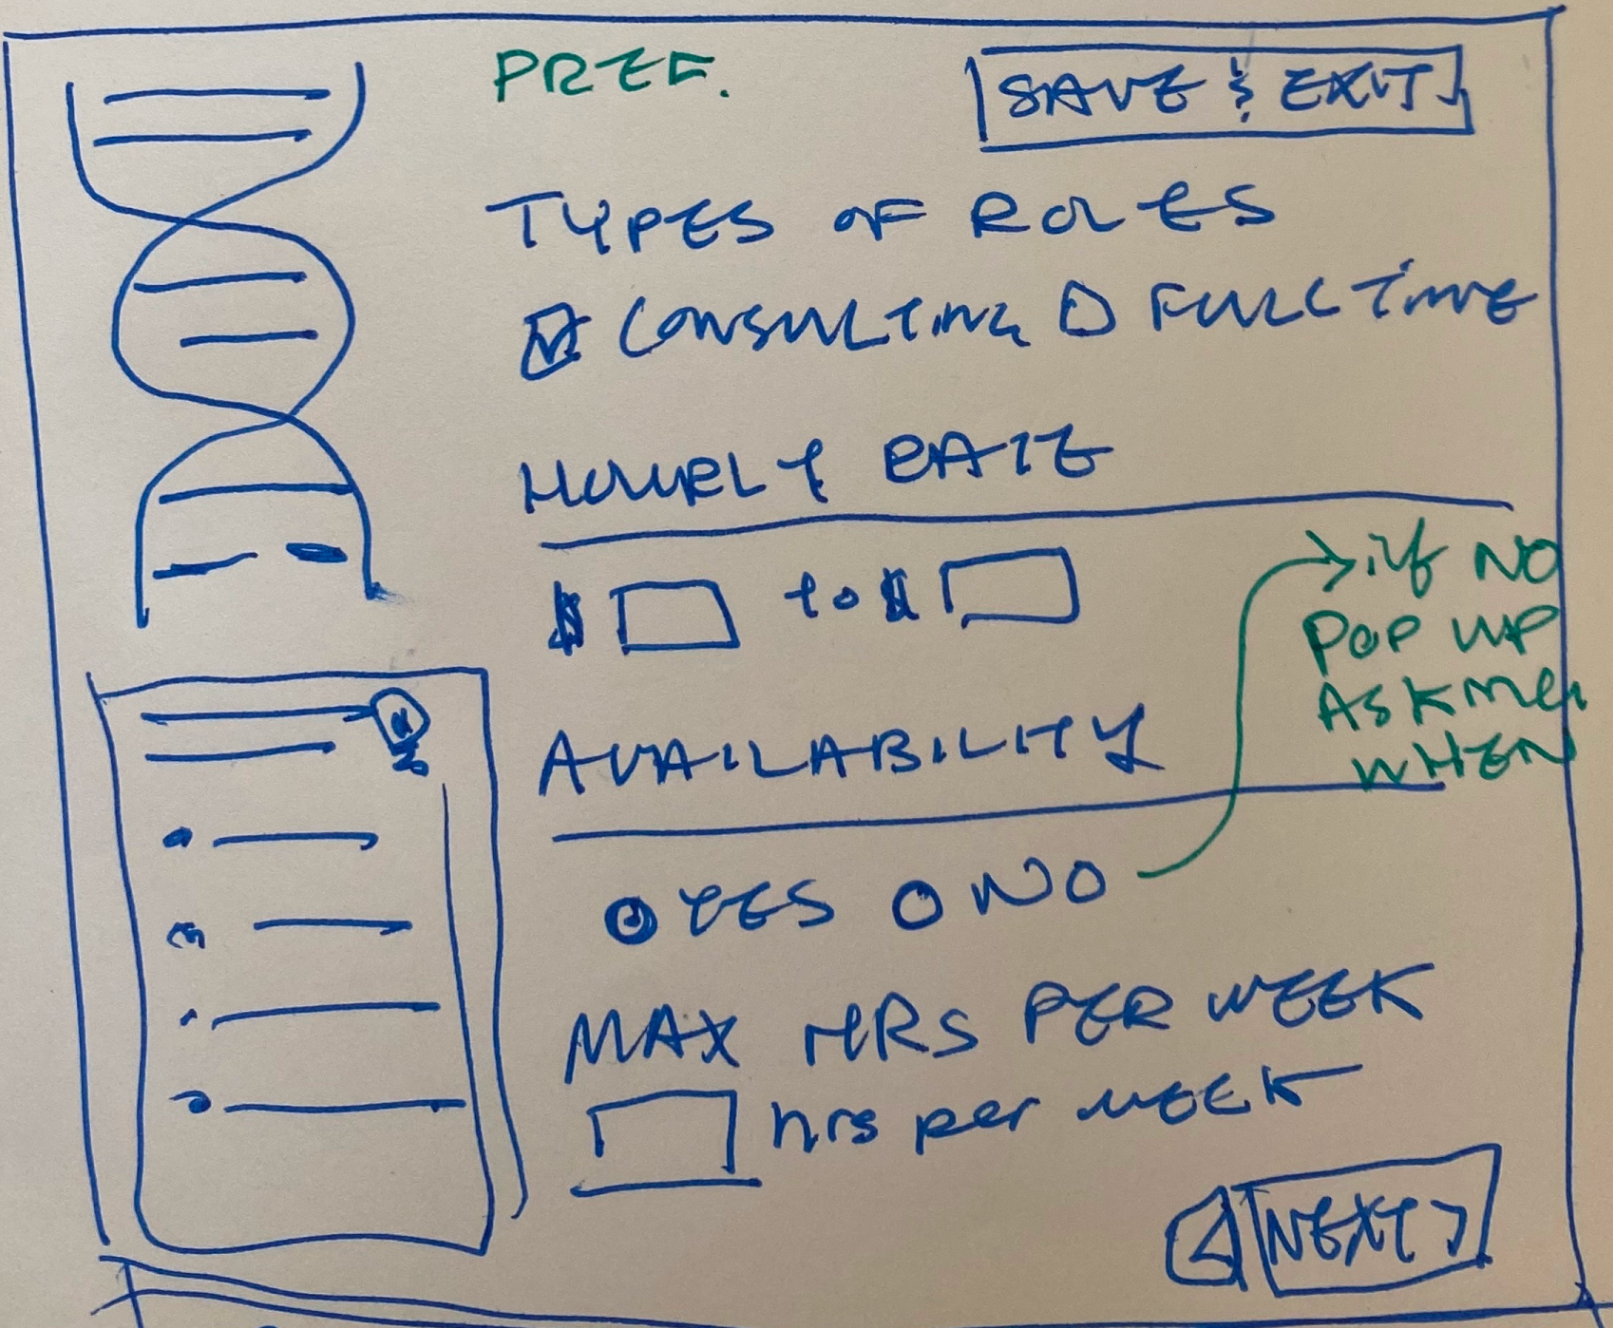 PREF.
SAVE & EXIT
TYPES OF ROLES
CONSULTING FULL TIME
HOURLY RATE
$ to $
if NO
POP UP
ASK ME
WHEN
AVAILABILITY
YES NO
MAX HRS PER WEEK
hrs per WEEK
< NEXT >